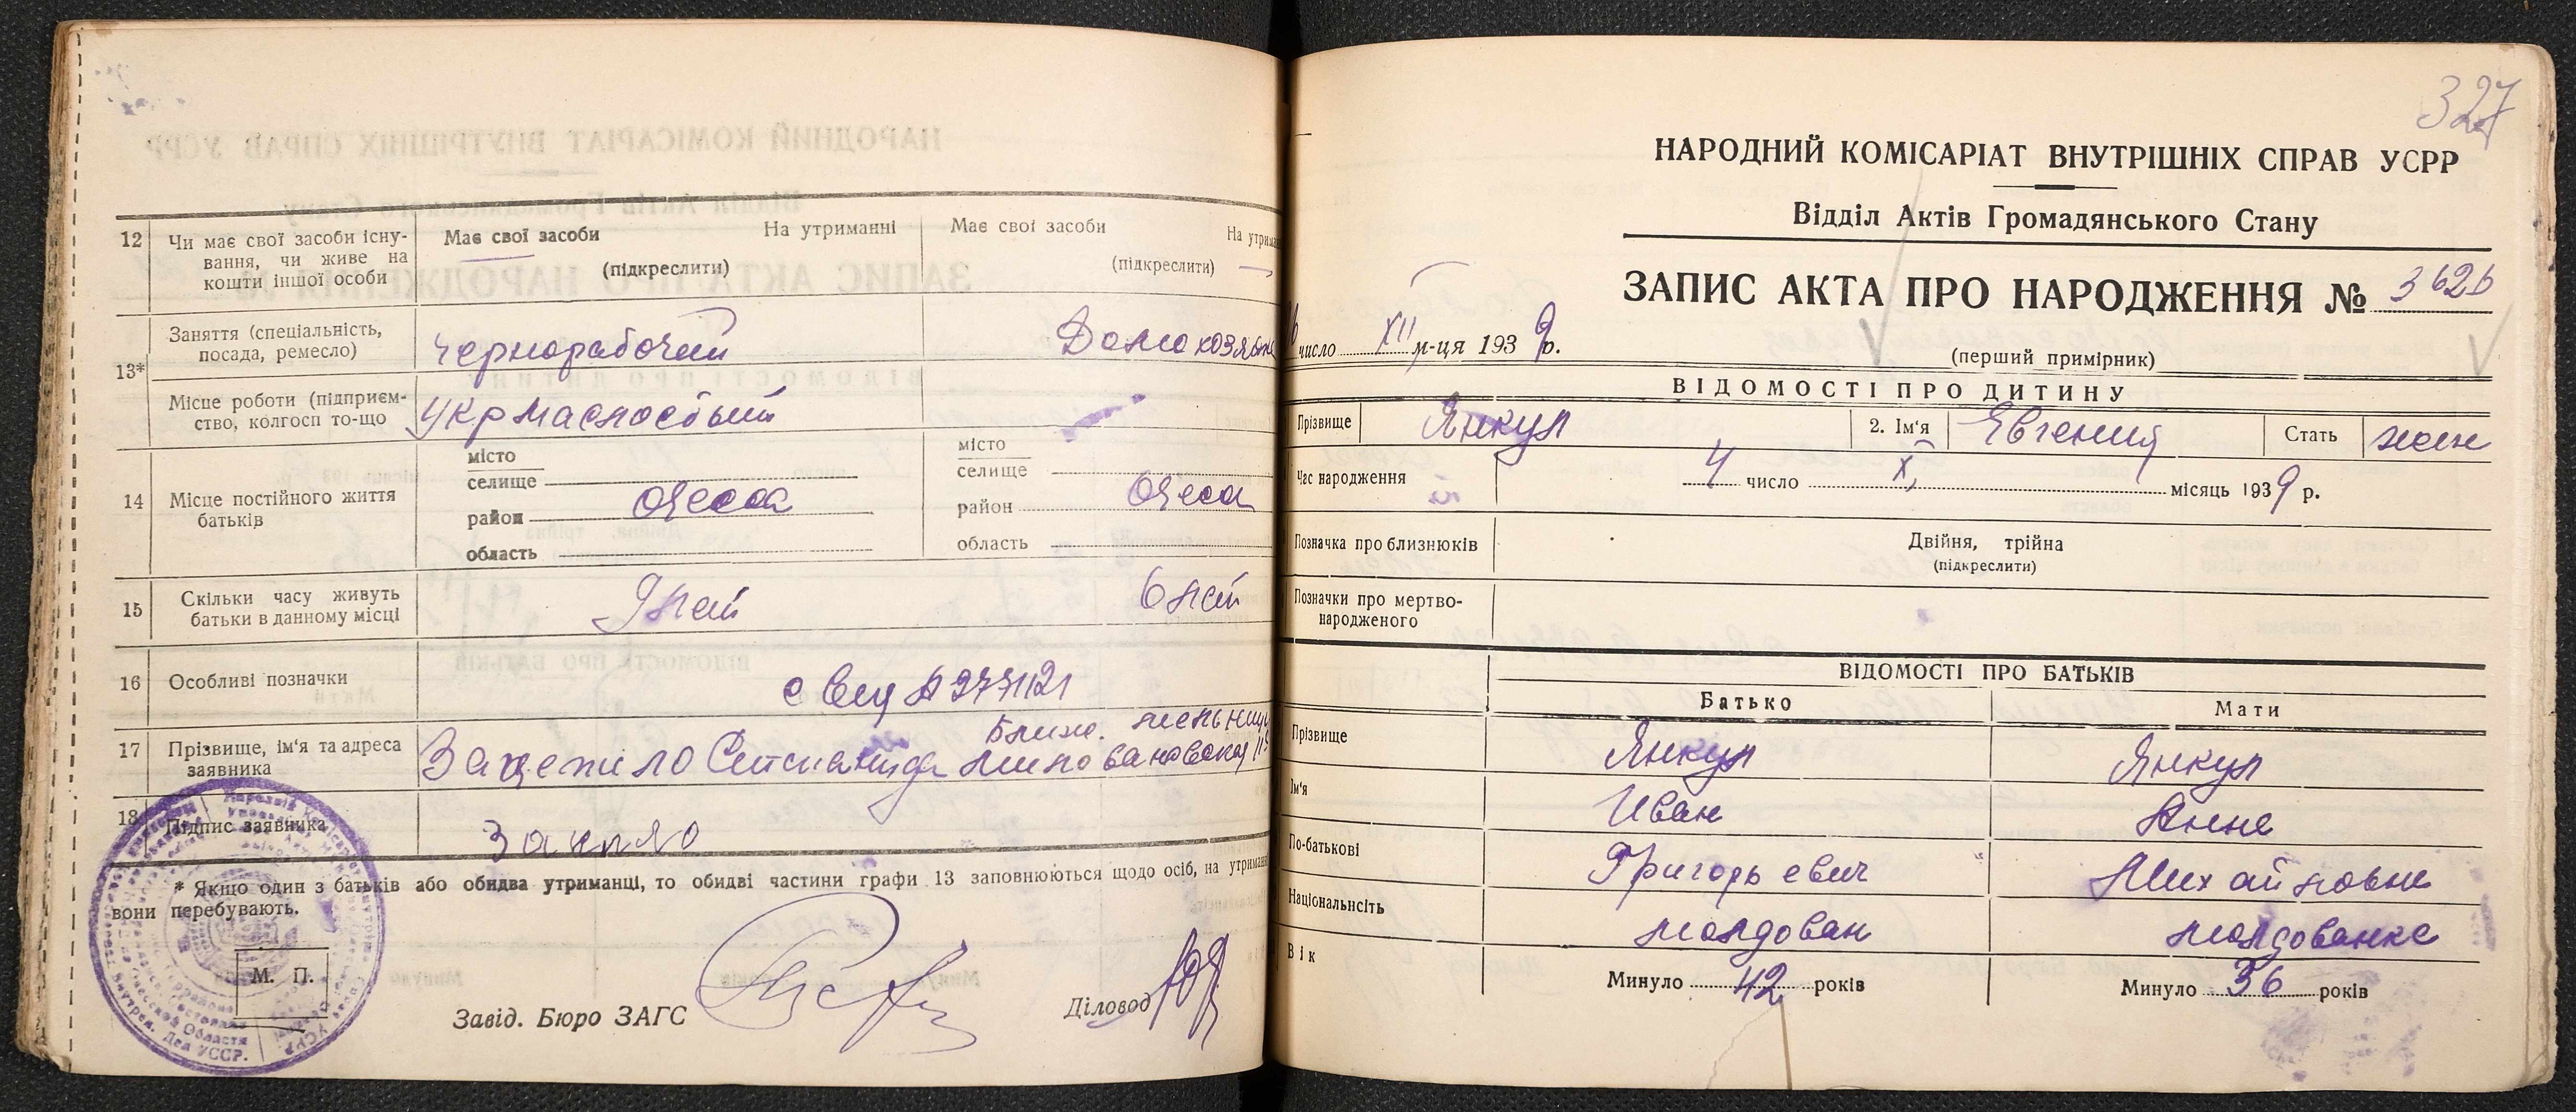 12 Чи має свої засоби існу-
вання, чи живе на
кошти іншої особи
Має свої засоби На утриманні
(підкреслити)
Має свої засоби На утрима
(підкреслити)
13*
Заняття (спеціальність,
посада, ремесло)
чернорабочий
Домохозяйка
Місце роботи (підприєм-
ство, колгосп то-що
Укрмаслосбыт
14 Місце постійного життя
батьків
місто
селище
район
Одесса
область
місто
селище
район
Одесса
область
15 Скільки часу живуть
батьки в данному місці
9 лет
6 лет
16 Особливі позначки
17 Прізвище, ім'я та адреса
заявника
18 Підпис заявника
* Якщо один з батьків або обидва утриманці, то обидві частини графи 13 заповнюються щодо осіб, на утриманні
вони перебувають.
М. П.
Завід. Бюро ЗАГС
Діловод
327
НАРОДНИЙ КОМІСАРІАТ ВНУТРІШНІХ СПРАВ УСРР
Відділ Актів Громадянського Стану
ЗАПИС АКТА ПРО НАРОДЖЕННЯ № 3626
число XII м-ця 1939 р.
(перший примірник)
ВІДОМОСТІ ПРО ДИТИНУ
Прізвище Янкул 2. Ім'я Евгения Стать жен
Час народження 4 число X місяць 1939 р.
Позначка про близнюків Двійня, трійна
(підкреслити)
Позначки про мертво-
народженого
ВІДОМОСТІ ПРО БАТЬКІВ
Батько Мати
Прізвище Янкул Янкул
Ім'я Иван Анна
По-батькові Григорьевич Михайловна
Національність молдован молдованка
Вік Минуло 42 років Минуло 36 років